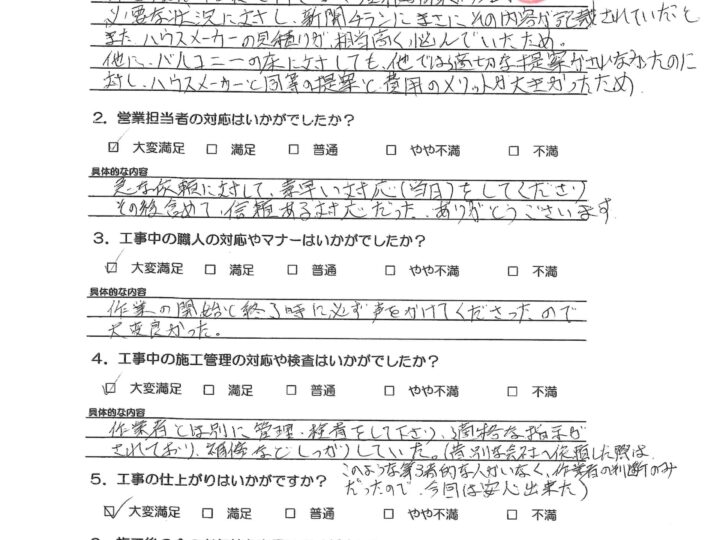 必要な状況に対し、新聞チラシにまさにその内容が記載されていたと
またハウスメーカーの見積りが、相当高く悩んでいたため。
他に、バルコニーの床に対しても、他では適切な提案がさ なかったのに
対し、ハウスメーカーと同等の提案と費用のメリットが大きかったため
2. 営業担当者の対応はいかがでしたか?
☑ 大変満足 □ 満足 □ 普通 □ やや不満 □ 不満
具体的な内容
急な依頼に対して、素早い対応(当日)をしてくださり
その後含めて、信頼ある対応だった。ありがとうございます
3. 工事中の職人の対応やマナーはいかがでしたか?
☑ 大変満足 □ 満足 □ 普通 □ やや不満 □ 不満
具体的な内容
作業の開始と終了時に必ず声をかけてくださったので
大変良かった。
4. 工事中の施工管理の対応や検査はいかがでしたか?
☑ 大変満足 □ 満足 □ 普通 □ やや不満 □ 不満
具体的な内容
作業者とは別に管理・検査をして下さり、適格な指示が
されており、補修などしっかりしていた。(昔別な会社へ依頼した際は
このような第3者的な人がいなく、作業者の判断のみ
だったので、今回は安心出来た)
5. 工事の仕上がりはいかがですか?
☑ 大変満足 □ 満足 □ 普通 □ やや不満 □ 不満